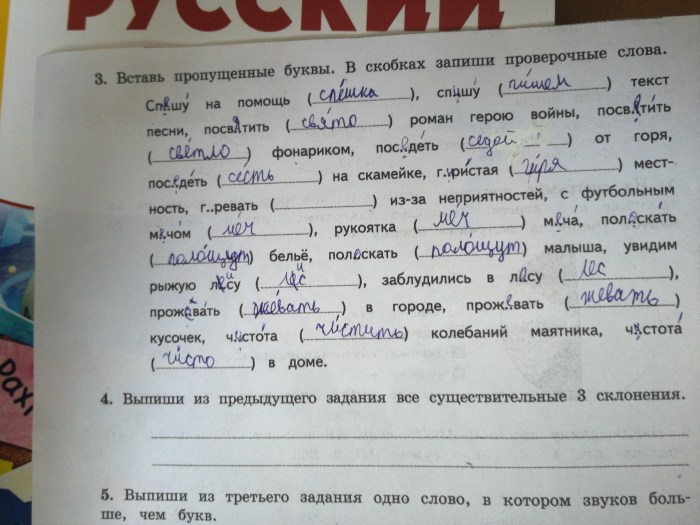 РУССКИЙ
3. Вставь пропущенные буквы. В скобках запиши проверочные слова.
Спешу́ на помощь (спе́шка), спишу́ (пи́шем) текст
песни, посвятить (свя́то) роман герою войны, посветить
(светло) фонариком, поседеть (седой) от горя,
посидеть (сесть) на скамейке, г..ристая (го́ря) мест-
ность, г..ревать () из-за неприятностей, с футбольным
мячом (мяч), рукоятка (меч) меча, поласкать
(поло́щут) бельё, поласкать (поло́щут) малыша, увидим
рыжую лису (лис), заблудились в лесу (лес),
проживать (жевать) в городе, прожевать (жевать)
кусочек, частота (чи́стить) колебаний маятника, чистота́
(чи́сто) в доме.
4. Выпиши из предыдущего задания все существительные 3 склонения.
5. Выпиши из третьего задания одно слово, в котором звуков боль-
ше, чем букв.